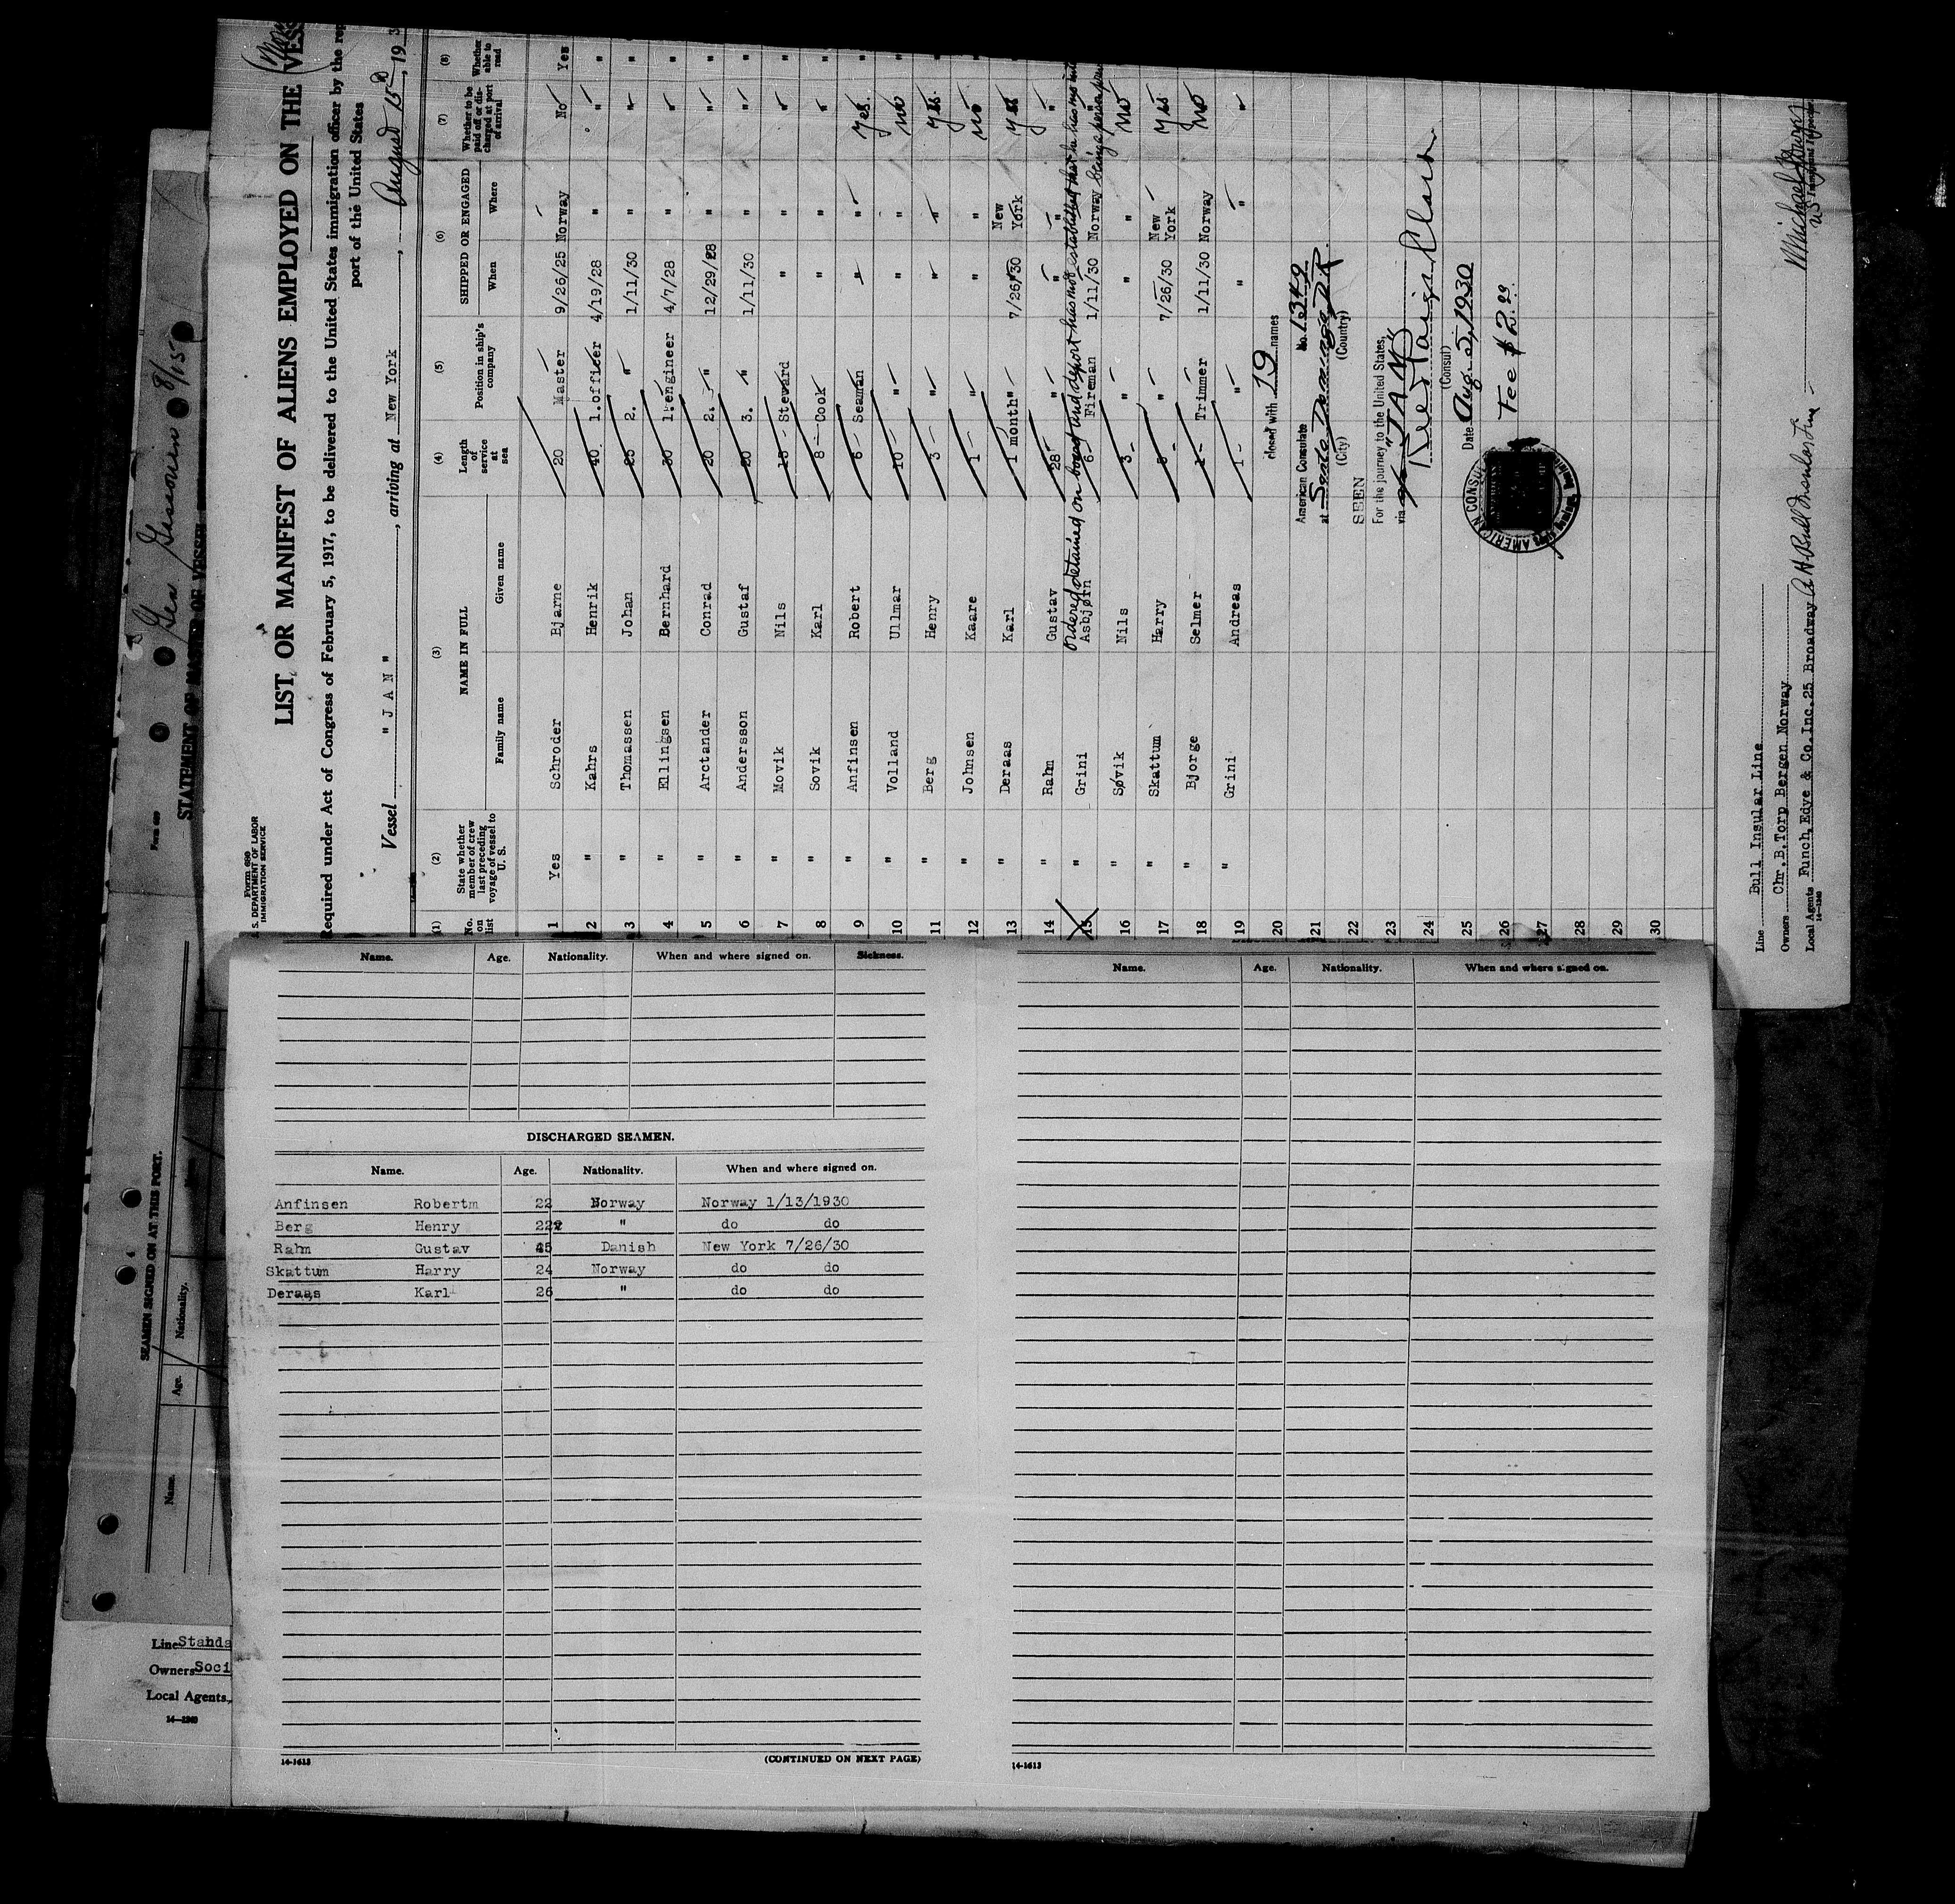 Form 680
S. DEPARTMENT OF LABOR
IMMIGRATION SERVICE
LIST OR MANIFEST OF ALIENS EMPLOYED ON THE VESS
Required under Act of Congress of February 5, 1917, to be delivered to the United States immigration officer by the rep
port of the United States
Vessel "JAN", arriving at New York, August 15, 193
(1) (2) (3) (4) (5) (6) (7) (8)
No. on list
State whether member of crew last preceding voyage of vessel to U. S.
NAME IN FULL
Family name Given name
Length of service at sea
Position in ship's company
SHIPPED OR ENGAGED
When Where
Whether to be paid off or discharged at port of arrival
Whether able to read
1 Yes Schroder Bjarne 20 Master 9/26/25 Norway No Yes
2 " Kahrs Henrik 40 1.officer 4/19/28 " " "
3 " Thomassen Johan 25 2. " 1/11/30 " " "
4 " Ellingsen Bernhard 30 1.engineer 4/7/28 " " "
5 " Arctander Conrad 20 2. " 12/29/28 " " "
6 " Andersson Gustaf 20 3. " 1/11/30 " " "
7 " Movik Nils 15 - Steward " " " "
8 " Sovik Karl 8 - Cook " " " "
9 " Anfinsen Robert 6 - Seaman " " yes. "
10 " Volland Ullmar 10 - " " " no "
11 " Berg Henry 3 - " " " yes. "
12 " Johnsen Kaare 1 - " " " no "
13 " Deraas Karl 1 month " 7/26/30 New York yes "
14 " Rahm Gustav 28 - " " " " "
ordered detained on board and deport has not established that he has no
15 " Grini Asbjørn 6 - Fireman 1/11/30 Norway being a person
16 " Søvik Nils 3 - " " " no
17 " Skattum Harry 8 - " 7/26/30 New York yes
18 " Bjorge Selmer 1 - Trimmer 1/11/30 Norway No
19 " Grini Andreas 1 - " " " "
20
21
22
23
24
25
26
27
28
29
30
closed with 19 names
American Consulate No. 1349
at Santo Domingo D.R.
(City) (Country)
SEEN
For the journey to the United States,
via "JAN"
(Consul)
Date Aug. 2, 1930
Fee $ 2.00
AMERICAN CONSUL
Line Bull Insular Line
Owners Chr. B. Torp Bergen Norway
Local Agents Funch, Edye & Co. Inc. 25 Broadway A H Bull Insular Line
14-1240
Immigrant Inspector
Form 689
STATEMENT OF MASTER OF VESSEL
8/15
SEAMEN SIGNED ON AT THIS PORT.
Name. Age. Nationality.
Line Standa
Owners Soci
Local Agents,
14-1240
Name. Age. Nationality. When and where signed on. Sickness.
DISCHARGED SEAMEN.
Name. Age. Nationality. When and where signed on.
Anfinsen Robertm 22 Norway Norway 1/13/1930
Berg Henry 22 " do do
Rahm Gustav 45 Danish New York 7/26/30
Skattum Harry 24 Norway do do
Deraas Karl 26 " do do
14-1613
(CONTINUED ON NEXT PAGE)
Name. Age. Nationality. When and where signed on.
14-1613